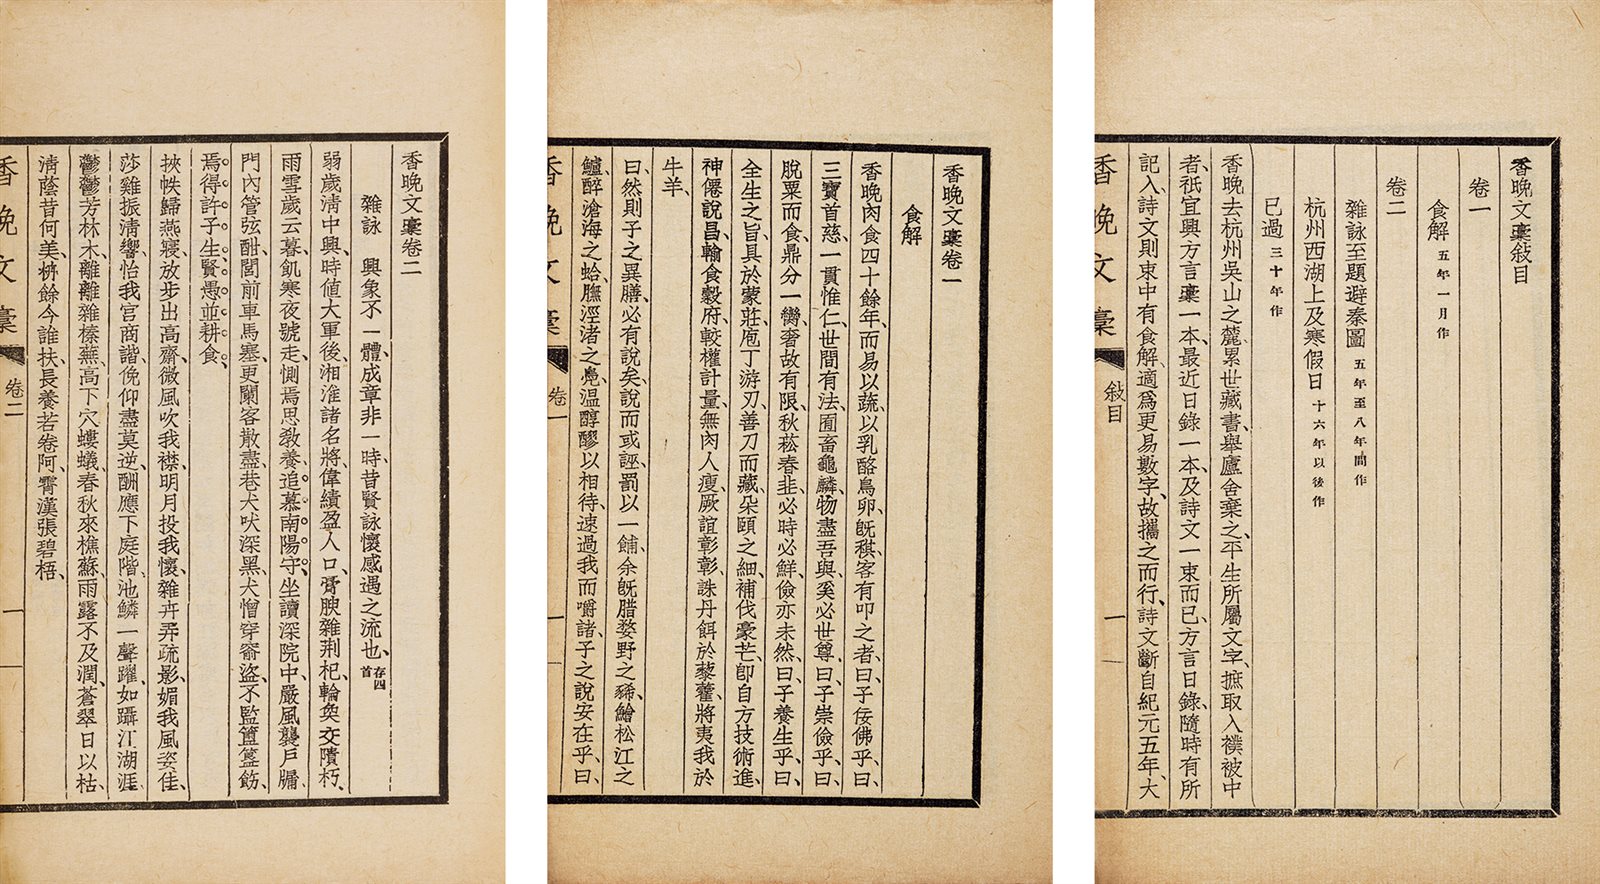 香晚文稾敍目
卷一
食解 五年一月作
卷二
雜詠至題避秦圖 五年至八年間作
杭州西湖上及寒假日 十六年以後作
已過 三十年作
香晚去杭州吳山之麓累世藏書舉廬舍棄之平生所屬文字摭取入襆被中
者祇宜興方言稾一本最近日錄一本及詩文一束而已方言日錄隨時有所
記入詩文則束中有食解適爲更易數字故攜之而行詩文斷自紀元五年大
香晚文稾 敍目 一
香晚文稾卷一
食解
香晚肉食四十餘年而易以蔬以乳酪鳥卵旣稘客有叩之者曰子佞佛乎曰
三寶首慈一貫惟仁世間有法囿畜龜麟物盡吾與奚必世尊曰子崇儉乎曰
脫粟而食鼎分一臠奢故有限秋菘春韭必時必鮮儉亦未然曰子養生乎曰
全生之旨具於蒙莊庖丁游刃善刀而藏朵頤之細補伐豪芒卽自方技術進
神僊說昌輸食穀府較權計量無肉人瘦厥誼彰彰誅丹餌於藜藿將夷我於
牛羊
曰然則子之異膳必有說矣說而或誣罰以一餔余旣腊婺野之豨鱠松江之
鱸醉滄海之蛤臕涇渚之鳧溫醇醪以相待速過我而嚼諸子之說安在乎曰
香晚文稾 卷一 一
香晚文稾卷二
雜詠 興象不一體成章非一時昔賢詠懷感遇之流也 存四首
弱歲淸中興時値大軍後湘淮諸名將偉績盈人口膏腴雜荆杞輪奐交隤朽
雨雪歲云暮飢寒夜號走惻焉思敎養追慕南陽守坐讀深院中嚴風襲戸牖
門內管弦酣閭前車馬塞更闌客散盡巷犬吠深黑犬憎穿窬盜不監簠簋飭
焉得許子生賢愚並耕食
挾帙歸燕寢放步出高齋微風吹我襟明月投我懷雜卉弄疏影媚我風姿佳
莎雞振淸響怡我宮商諧俛仰盡莫逆酬應下庭階池鱗一聲躍如躡江湖涯
鬱鬱芳林木離離雜榛蕪高下穴螻蟻春秋來樵蘇雨露不及潤蒼翠日以枯
淸蔭昔何美枿餘今誰扶長養若卷阿霄漢張碧梧
香晚文稾 卷二 一